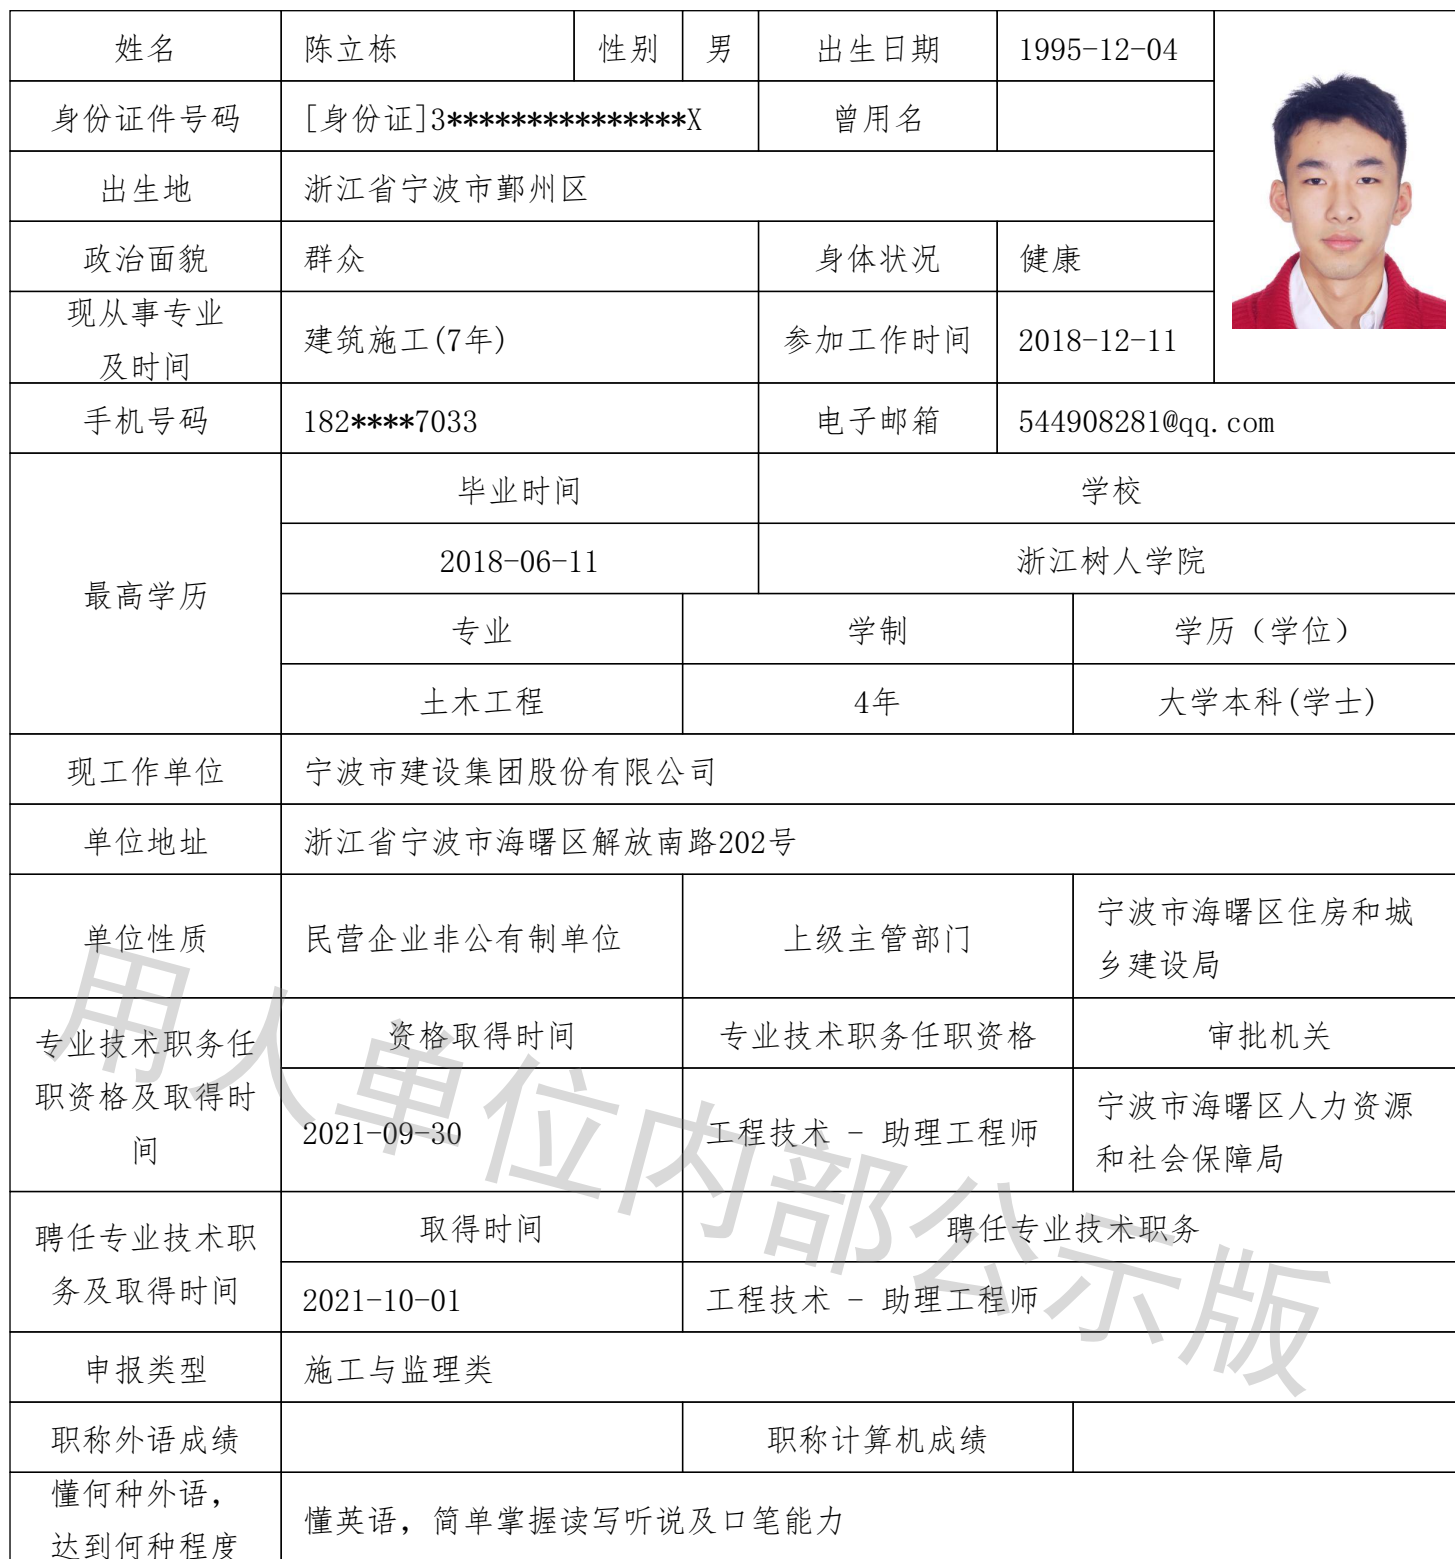 姓名 陈立栋 性别 男 出生日期 1995-12-04
身份证件号码 [身份证]3***************X 曾用名
出生地 浙江省宁波市鄞州区
政治面貌 群众 身体状况 健康
现从事专业
及时间
建筑施工(7年) 参加工作时间 2018-12-11
手机号码 182****7033 电子邮箱 544908281@qq.com
最高学历
毕业时间 学校
2018-06-11 浙江树人学院
专业 学制 学历（学位）
土木工程 4年 大学本科(学士)
现工作单位 宁波市建设集团股份有限公司
单位地址 浙江省宁波市海曙区解放南路202号
单位性质 民营企业非公有制单位 上级主管部门
宁波市海曙区住房和城
乡建设局
专业技术职务任
职资格及取得时
间
资格取得时间 专业技术职务任职资格 审批机关
2021-09-30 工程技术 - 助理工程师
宁波市海曙区人力资源
和社会保障局
聘任专业技术职
务及取得时间
取得时间 聘任专业技术职务
2021-10-01 工程技术 - 助理工程师
申报类型 施工与监理类
职称外语成绩 职称计算机成绩
懂何种外语，
达到何种程度
懂英语，简单掌握读写听说及口笔能力
用人单位内部公示版